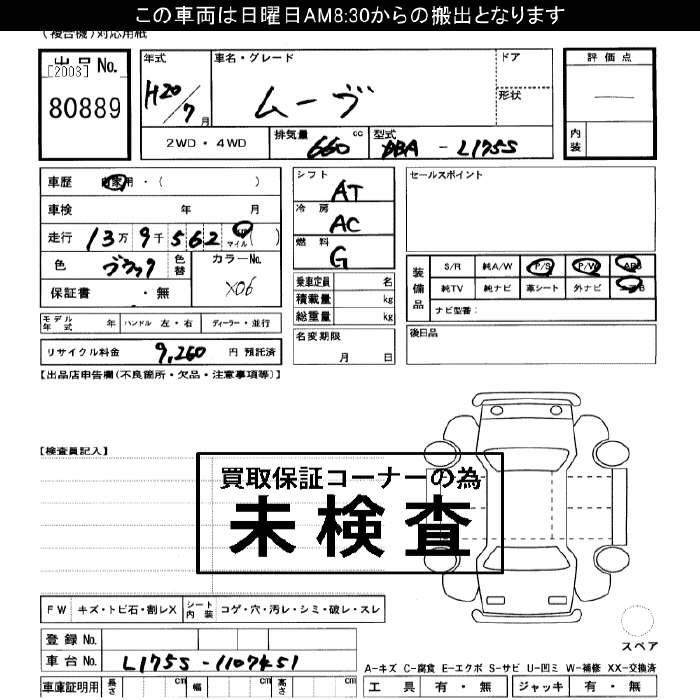 この車両は日曜日AM8:30からの搬出となります
(複合機)対応用紙
出品 No.
[2003]
80889
年式 H20/7月
車名・グレード ムーヴ
ドア
形状
2WD・4WD
排気量 660 cc
型式 DBA - L175S
評価点
内装
車歴 自家用・( )
車検 年 月
走行 13万9千562 マイル( )
色 ブラック 色替
カラーNo. X06
保証書 ・無
シフト AT
冷房 AC
燃料 G
乗車定員 名
積載量 kg
総重量 kg
名変期限 月 日
セールスポイント
装備品
S/R 純A/W P/S P/W ABS
純TV 純ナビ 革シート 外ナビ
ナビ型番:
後日品
モデル年式 年 ハンドル 左・右 ディーラー・並行
リサイクル料金 9,260 円 預託済
【出品店申告欄(不良箇所・欠品・注意事項等)】
【検査員記入】
買取保証コーナーの為
未検査
FW キズ・トビ石・割レX シート内装 コゲ・穴・汚レ・シミ・破レ・スレ
登録 No.
車台 No. L175S-1107451
車庫証明用 長さ cm 幅 cm 高さ cm
スペア
A-キズ C-腐食 E-エクボ S-サビ U-凹ミ W-補修 XX-交換済
工具 有・無 ジャッキ 有・無